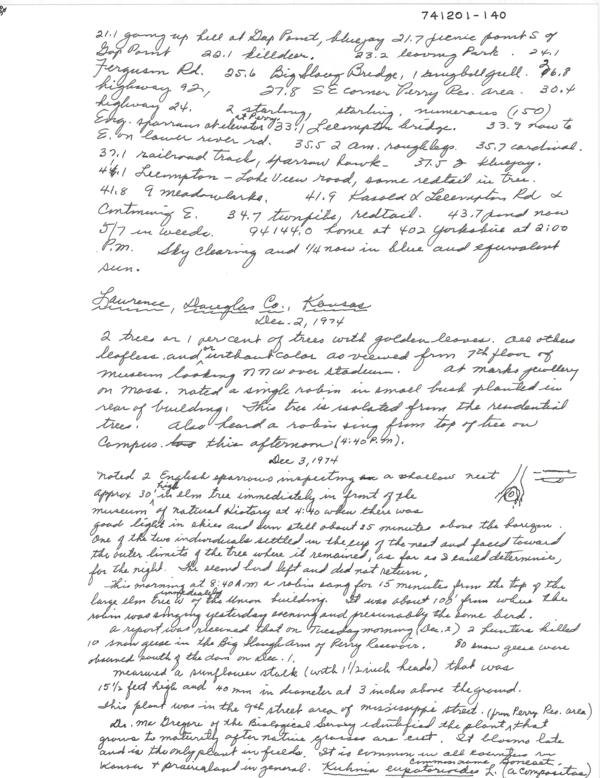 741201-140
21.1 going up hill at Gap Point, bluejay 21.7 picnic point S of
Gap Point 22.1 killdeer. 23.2 leaving Park. 24.1
Ferguson Rd. 25.6 Big Slough Bridge, 1 ringbill gull. 26.8
highway 92, 27.8 SE corner Perry Res. area. 30.4
highway 24. 2 starling, starling, numerous (150)
Eng. sparrows at elevator at Perry. 33.1 Lecompton bridge. 33.9 now to
E. on lower river rd. 35.5 2 am. roughlegs. 35.7 cardinal.
37.1 railroad track, sparrow hawk - 37.5 2 bluejay.
41.1 Lecompton - Lake View road, some redtail in tree.
41.8 9 meadowlarks. 41.9 Kasold & Lecompton Rd &
Continuing E. 34.7 turnpike, redtail. 43.7 pond now
5/7 in weeds. 94144.0 home at 402 Yorkshire at 2:00
P.M. Sky clearing and 1/4 now in blue and equivalent
sun.
Lawrence, Douglas Co., Kansas
Dec. 2, 1974
2 trees or 1 percent of trees with golden leaves. All others
leafless and or without color as viewed from 7th floor of
museum looking NNW over stadium. At Marks jewellery
on Mass. noted a single robin in small bush planted in
rear of building. This tree is isolated from the residential
trees. Also heard a robin sing from top of tree on
Campus this afternoon (4:40 P.M).
Dec 3, 1974
Noted 2 English sparrows inspecting a shallow nest
approx 30' high in elm tree immediately in front of the
museum of natural History at 4:40 when there was
good light in skies and sun still about 25 minutes above the horizon.
One of the two individuals settled in the cup of the nest and faced toward
the outer limits of the tree where it remained, as far as I could determine,
for the night. The second bird left and did not return.
This morning at 8:40 A.M a robin sang for 15 minutes from the top of the
large elm tree immediately W of the Union building. It was about 100' from where the
robin was singing yesterday evening and presumably the same bird.
A report was received that on Tuesday morning (Dec. 2) 2 hunters killed
10 snow geese in the Big Slough Arm of Perry Reservoir. 80 snow geese were
observed south of the dam on Dec. 1.
Measured a sunflower stalk (with 1 1/2 inch heads) that was
15 1/2 feet high and 40 mm in diameter at 3 inches above the ground.
This plant was in the 9th street area of Mississippi street. (from Perry Res. area)
Dr. McGregor of the Biological Survey identified the plant, that
grows to maturity after native grasses are cut. It blooms late
and is the only plant in fields. It is common in all counties in
Kansas & prairieland in general. Kuhnia eupatorioides L. (a compositae)
Common name